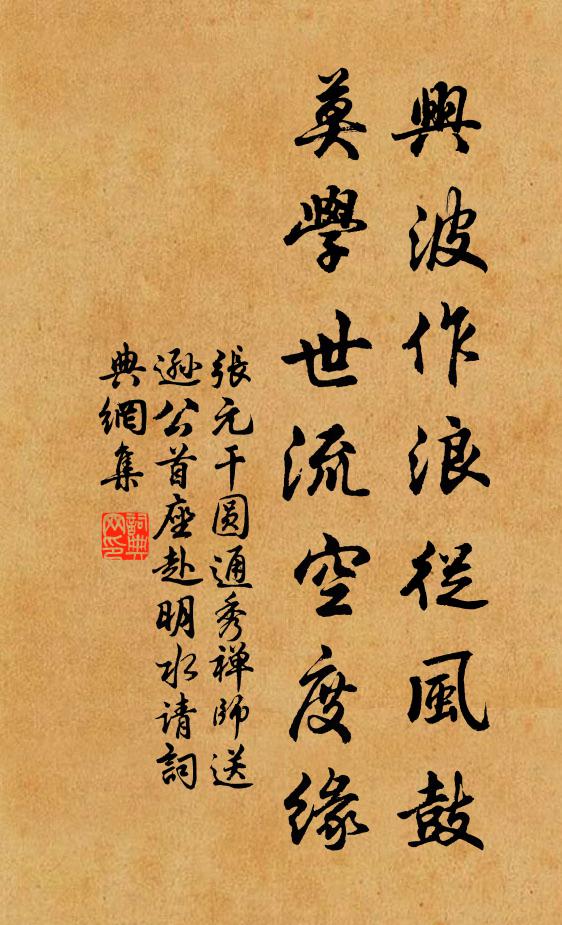 興波作浪從風鼓
莫學世流空度緣
張元干圆通秀禅師送
遜公首座赴明水请詞
典網集
詞典网印